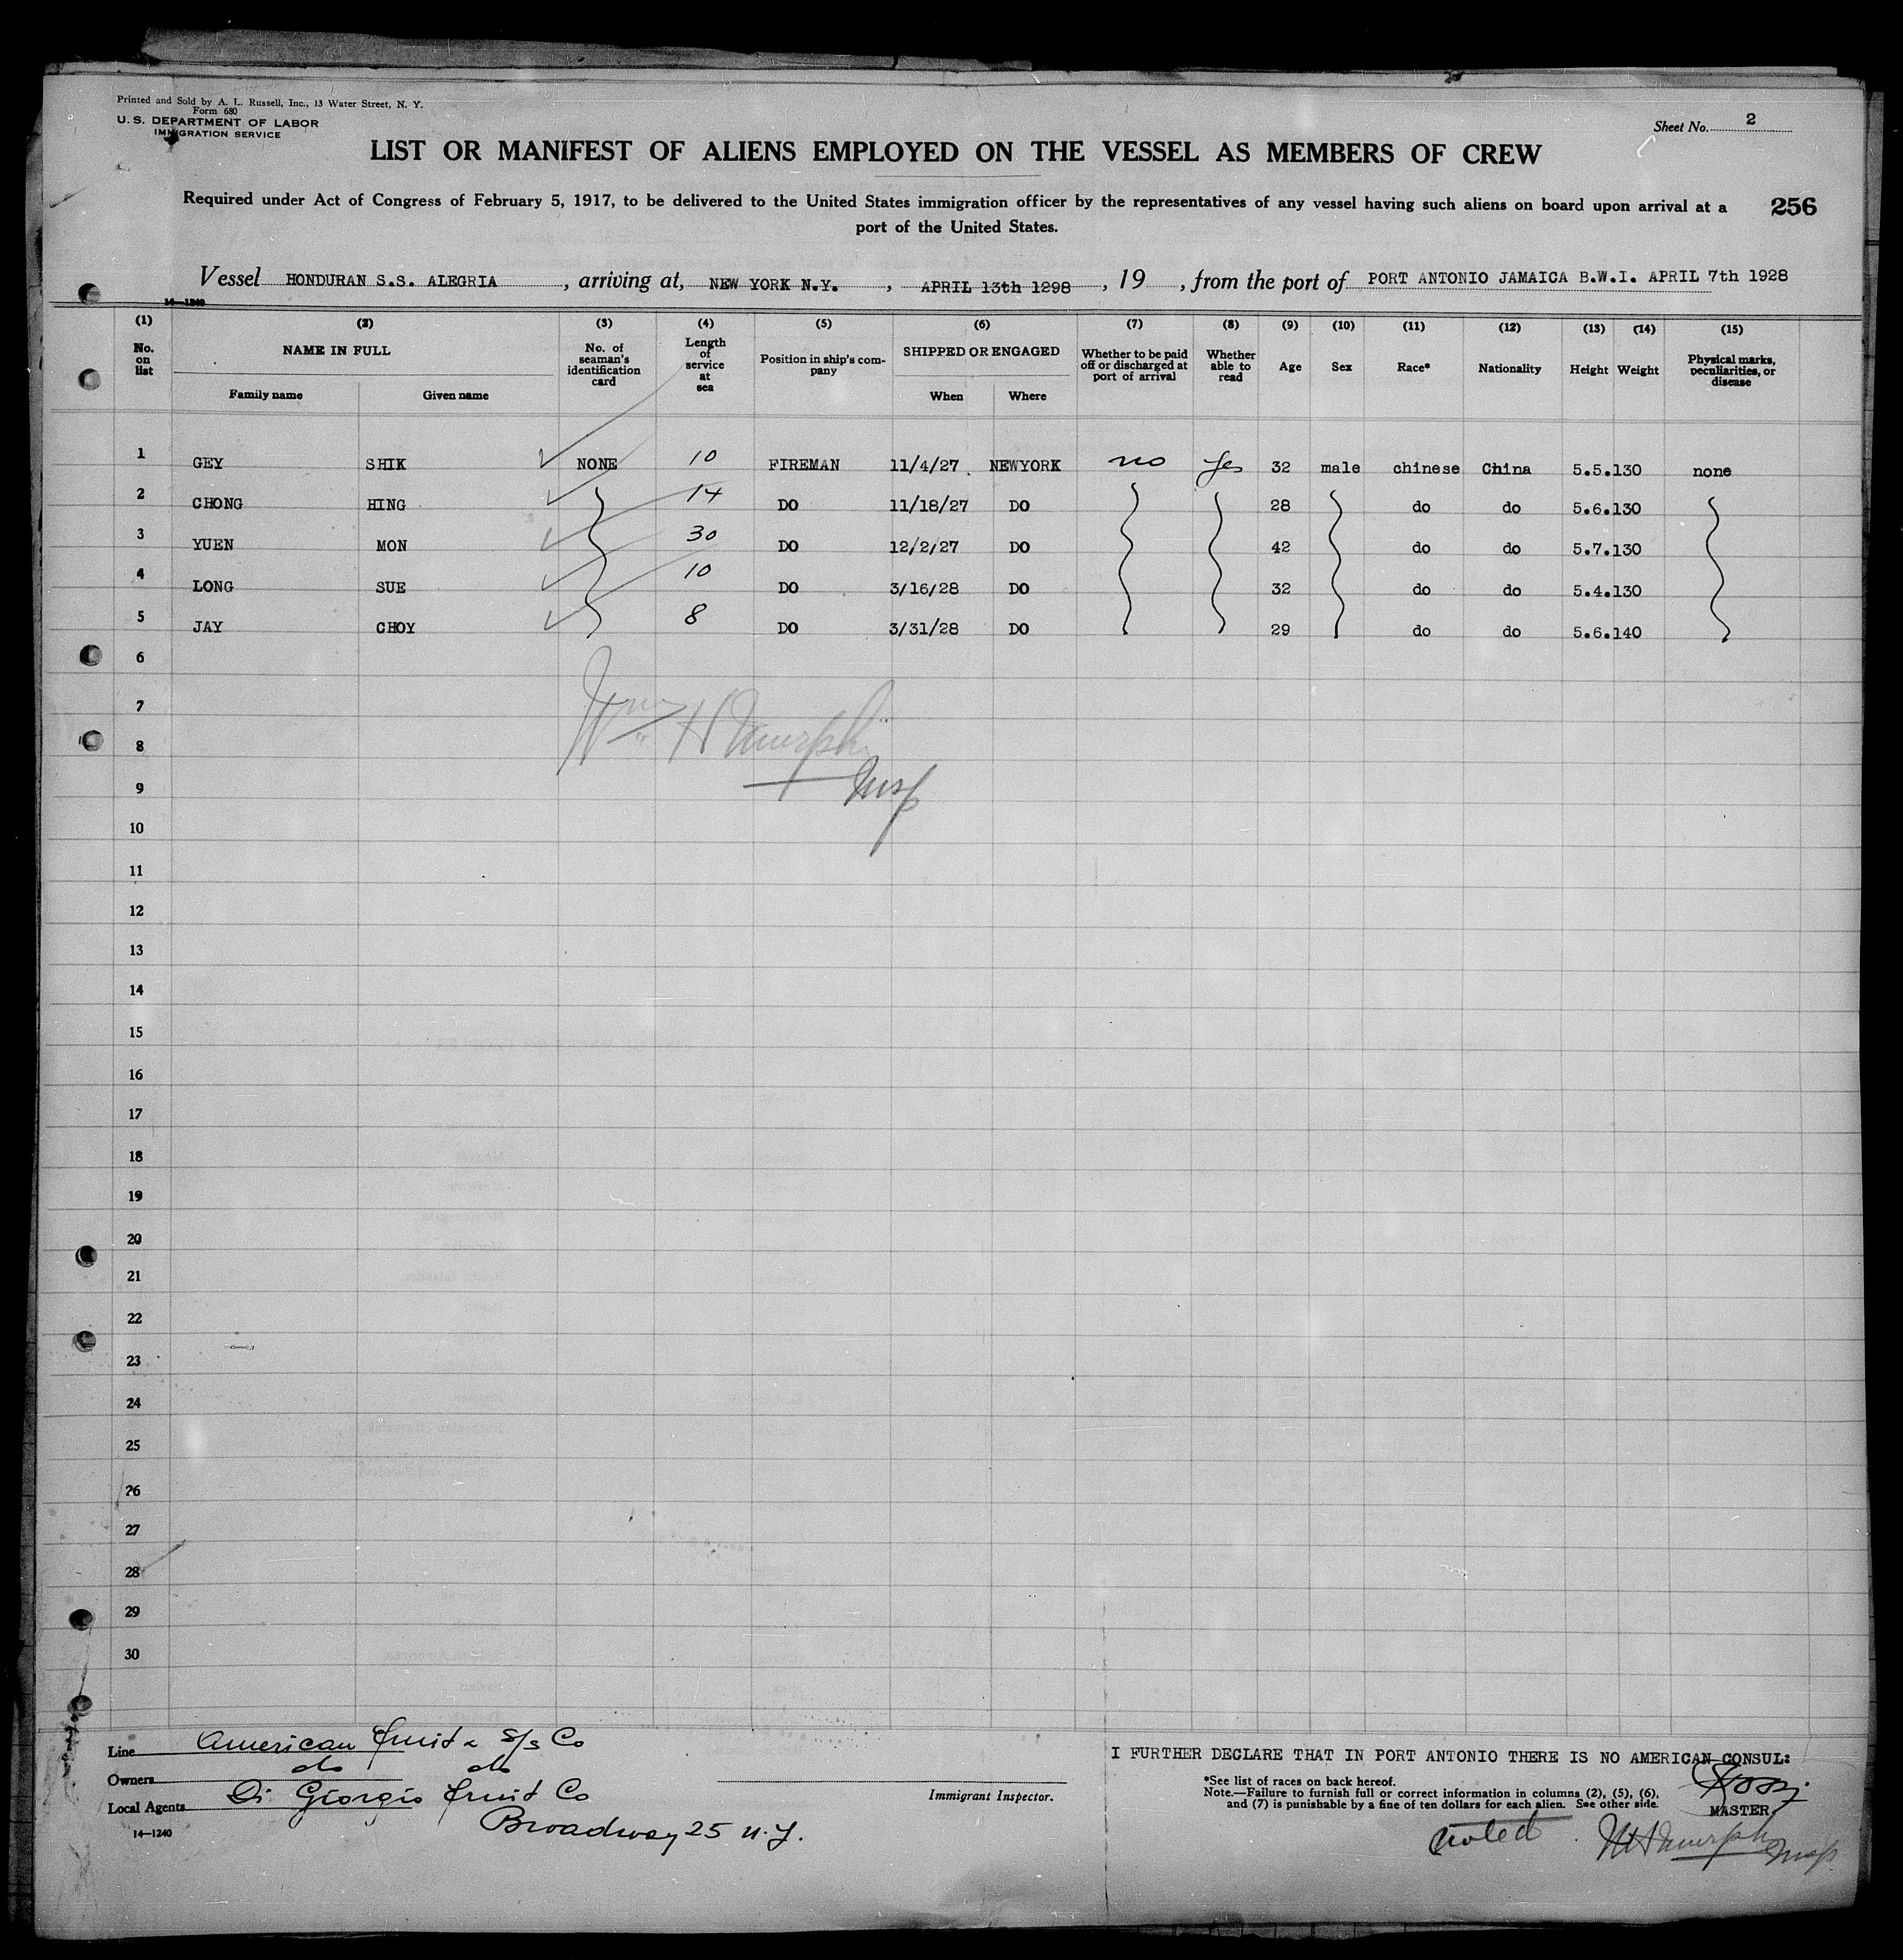 Printed and Sold by A. L. Russell, Inc., 13 Water Street, N. Y.
Form 680
U. S. DEPARTMENT OF LABOR
IMMIGRATION SERVICE
Sheet No. 2
LIST OR MANIFEST OF ALIENS EMPLOYED ON THE VESSEL AS MEMBERS OF CREW
Required under Act of Congress of February 5, 1917, to be delivered to the United States immigration officer by the representatives of any vessel having such aliens on board upon arrival at a
port of the United States.
256
Vessel HONDURAN S.S. ALEGRIA , arriving at, NEW YORK N.Y. , APRIL 13th 1298 , 19 , from the port of PORT ANTONIO JAMAICA B.W.I. APRIL 7th 1928
14—1240
(1) (2) (3) (4) (5) (6) (7) (8) (9) (10) (11) (12) (13) (14) (15)
No. on list NAME IN FULL No. of seaman's identification card Length of service at sea Position in ship's company SHIPPED OR ENGAGED Whether to be paid off or discharged at port of arrival Whether able to read Age Sex Race* Nationality Height Weight Physical marks, peculiarities, or disease
Family name Given name When Where
1 GEY SHIK NONE 10 FIREMAN 11/4/27 NEWYORK no yes 32 male chinese China 5.5.130 none
2 CHONG HING 14 DO 11/18/27 DO 28 do do 5.6.130
3 YUEN MON 30 DO 12/2/27 DO 42 do do 5.7.130
4 LONG SUE 10 DO 3/16/28 DO 32 do do 5.4.130
5 JAY CHOY 8 DO 3/31/28 DO 29 do do 5.6.140
6
7
Wm H Murphy
8
9
Insp
10
11
12
13
14
15
16
17
18
19
20
21
22
23
24
25
26
27
28
29
30
Line American Fruit & S/s Co
Owners do do
Local Agents Di Giorgio Fruit Co
Broadway 25 N.Y.
14—1240
Immigrant Inspector.
I FURTHER DECLARE THAT IN PORT ANTONIO THERE IS NO AMERICAN CONSUL:
*See list of races on back hereof.
Note.—Failure to furnish full or correct information in columns (2), (5), (6),
and (7) is punishable by a fine of ten dollars for each alien. See other side.
MASTER
noted. W H Murphy Insp